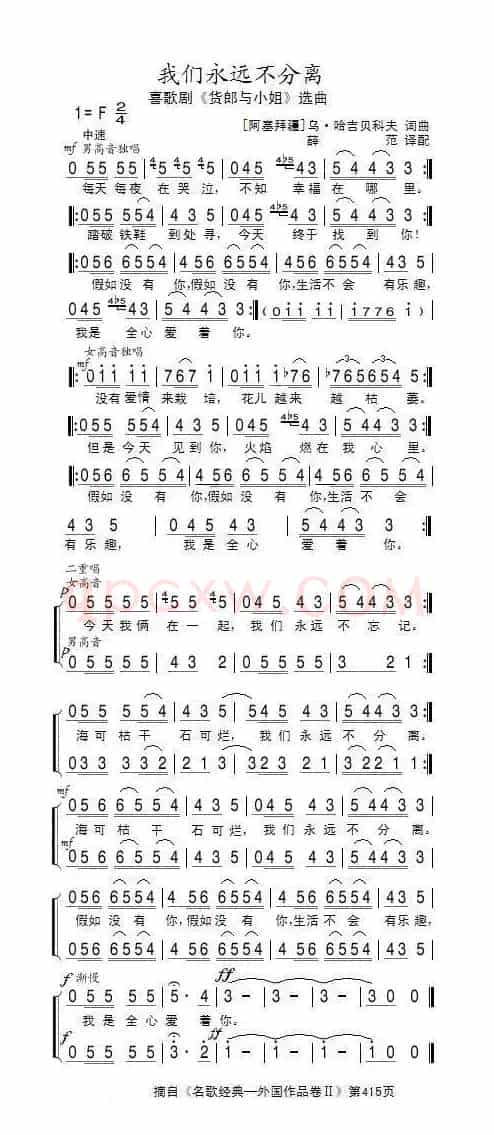 我们永远不分离
喜歌剧《货郎与小姐》选曲
1=F 2/4
[阿塞拜疆]乌·哈吉贝科夫 词曲
薛 范 译配
中速
mf 男高音独唱
0 55 55 | 45 5 45 5 | 045 4♭5 43 | 5 44 3 3 :‖
每天 每夜 在 哭 泣, 不知 幸福 在 哪 里。
‖: 055 554 | 435 | 045 4♭5 43 | 5 44 3 3 :‖
踏破 铁鞋 到处 寻, 今天 终于 找 到 你!
‖: 056 6554 | 456 6554 | 456 6554 | 435 |
假如 没 有 你,假如 没 有 你,生活 不 会 有乐趣,
045 4♭5 43 | 5 44 3 3 :‖ (0ii ii | i776 i)
我是 全心 爱 着 你。
女高音独唱
mf
‖: 0ii ii | 767 | 0ii i♭76 | 765654 5 :‖
没有 爱情 来栽 培, 花儿 越来 越 枯 萎。
‖: 055 554 | 435 | 045 4♭5 43 | 5 44 3 3 :‖
但是 今天 见到 你, 火焰 燃在 我 心 里。
‖: 056 6554 | 456 6554 | 456 6554 |
假如 没 有 你,假如 没 有 你,生活 不 会
4 3 5 | 045 43 | 5 44 3 3 :‖
有乐趣, 我是 全心 爱 着 你。
二重唱
女高音
p
055 55 | 45 5 45 5 | 045 43 | 5 44 3 3 :‖
今天 我俩 在 一 起, 我们 永远 不 忘 记。
男高音
p
055 55 | 43 2 | 055 55 | 3 21 :‖
055 554 | 435 | 045 43 | 5 44 3 3 :‖
海可 枯干 石可烂, 我们 永远 不 分 离。
033 332 | 321 | 033 321 | 3 22 1 1 :‖
mf
056 6554 | 435 | 045 43 | 5 44 3 3 :‖
海可 枯 干 石可烂, 我们 永远 不 分 离。
mf
056 6554 | 435 | 045 43 | 5 44 3 3 :‖
056 6554 | 456 6554 | 456 6554 | 435 |
假如 没 有 你,假如 没 有 你,生活 不 会 有乐趣,
056 6554 | 456 6554 | 456 6554 | 435 |
f 渐慢 ff
055 55 | 5· 4 | 3 - | 3 - | 3 - | 3 0 0 ‖
我是 全心 爱 着 你。
f ff
055 55 | 3· 2 | 1 - | 1 - | 1 - | 1 0 0 ‖
摘自《名歌经典—外国作品卷Ⅱ》第415页